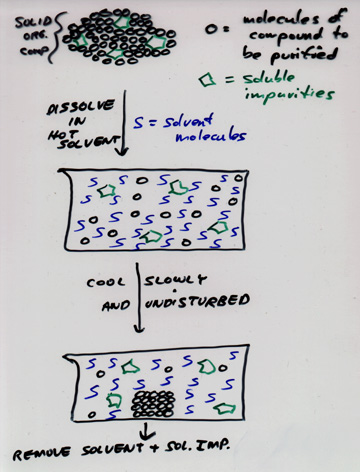 SOLID
ORG.
COMP
O = molecules of
compound to
be purified
= soluble
impurities
DISSOLVE
IN
HOT
SOLVENT
S = solvent
molecules
S S S S S
S S S S
S S S S S S
S S S S S
S S S S
COOL SLOWLY
AND UNDISTURBED
S S S S S
S S S S
S S S S S
S S S
S S S S
REMOVE SOLVENT + SOL. IMP.